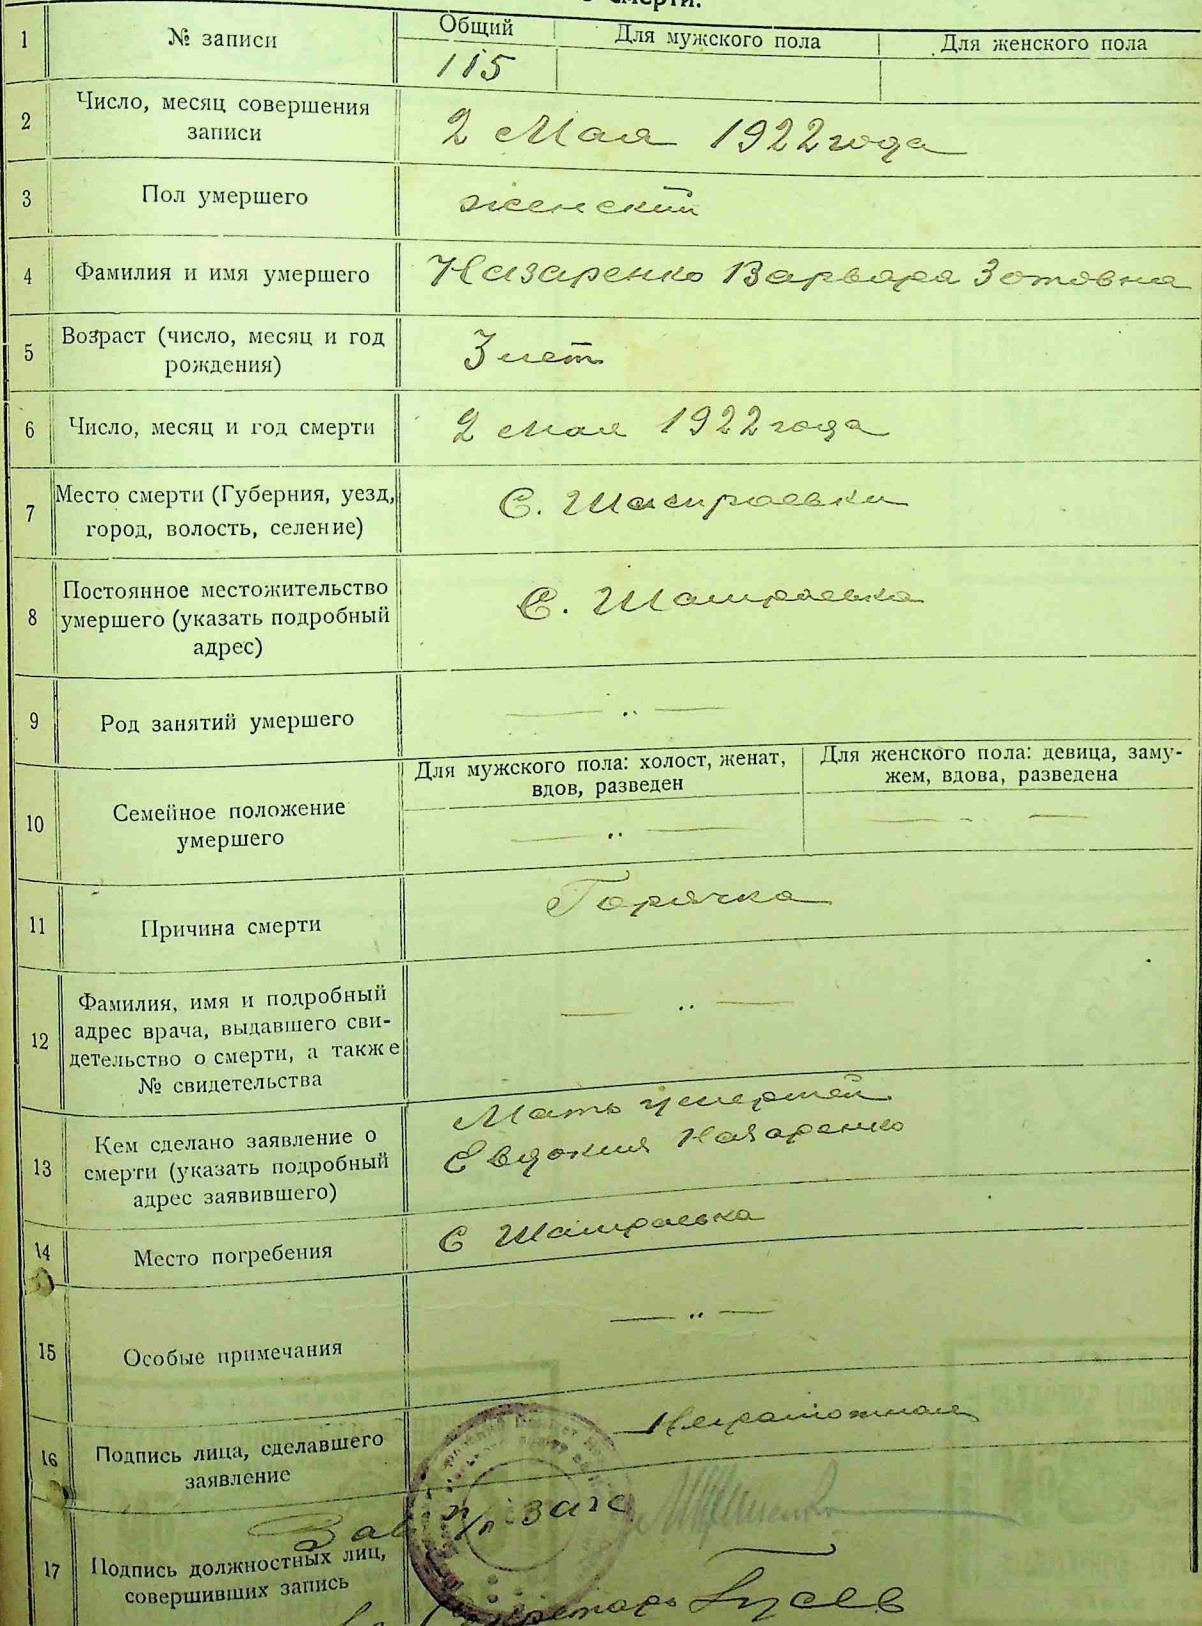 о смерти.
1 № записи Общий Для мужского пола Для женского пола
115
2 Число, месяц совершения
записи
2 Мая 1922 года
3 Пол умершего женский
4 Фамилия и имя умершего Назаренко Варвара Зотовна
5 Возраст (число, месяц и год
рождения)
3 лет
6 Число, месяц и год смерти 2 мая 1922 года
7 Место смерти (Губерния, уезд,
город, волость, селение)
С. Шамраевки
8 Постоянное местожительство
умершего (указать подробный
адрес)
С. Шамраевка
9 Род занятий умершего — „ —
10 Семейное положение
умершего
Для мужского пола: холост, женат,
вдов, разведен
— „ —
Для женского пола: девица, заму-
жем, вдова, разведена
— „ —
11 Причина смерти Горячка
12 Фамилия, имя и подробный
адрес врача, выдавшего сви-
детельство о смерти, а также
№ свидетельства
— „ —
13 Кем сделано заявление о
смерти (указать подробный
адрес заявившего)
Мать умершей
Евдокия Назаренко
14 Место погребения С Шамраевка
15 Особые примечания — „ —
16 Подпись лица, сделавшего
заявление
Неграмотная
17 Подпись должностных лиц,
совершивших запись
Зав п/о загс
Секретарь Гусев